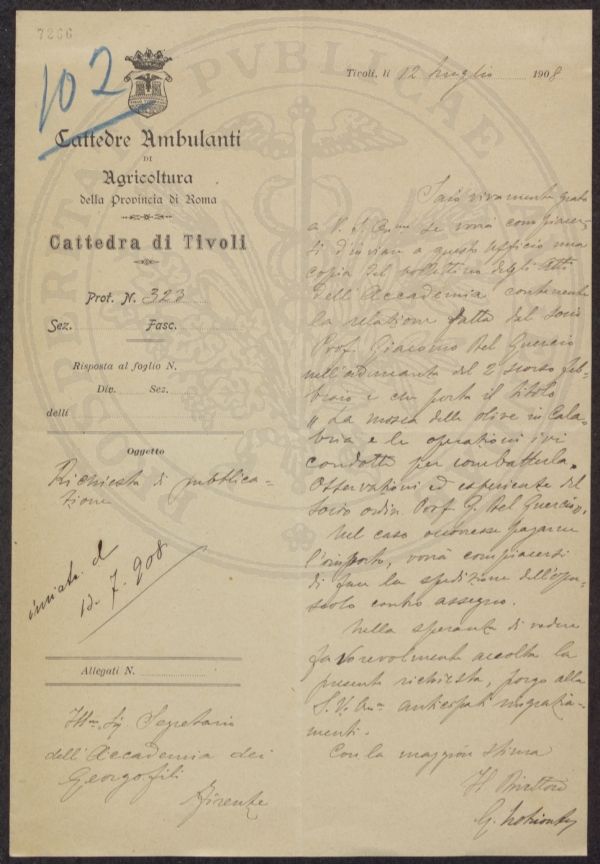 7266
102
Cattedre Ambulanti
DI
Agricoltura
della Provincia di Roma
Cattedra di Tivoli
Prot. N. 323
Sez. Fasc.
Risposta al foglio N.
Div. Sez.
delli
Oggetto
Richiesta di pubblica-
zione
inviato il
13.7.908
Allegati N.
Ill.mo Sig. Segretario
dell'Accademia dei
Georgofili
Firenze
Tivoli, li 12 luglio 1908
Sarò vivamente grato
a V. S. Ill.ma se vorrà compiacer-
si d'inviare a questo ufficio una
copia del bollettino degli Atti
dell'Accademia contenente
la relazione fatta dal socio
Prof. Giacomo Del Guercio
nell'adunanza del 2 scorso feb-
braio e che porta il titolo
"La mosca delle olive in Cala-
bria e le operazioni ivi
condotte per combatterla.
Osservazioni ed esperienze del
socio ordin. Prof. G. Del Guercio".
Nel caso occorresse pagarne
l'importo, vorrà compiacersi
di fare la spedizione dell'opu-
scolo contro assegno.
Nella speranza di vedere
favorevolmente accolta la
presente richiesta, porgo alla
S. V. Ill.ma anticipati ringrazia-
menti.
Con la maggior stima
Il Direttore
G.
PROSPERITATI PVBLICAE